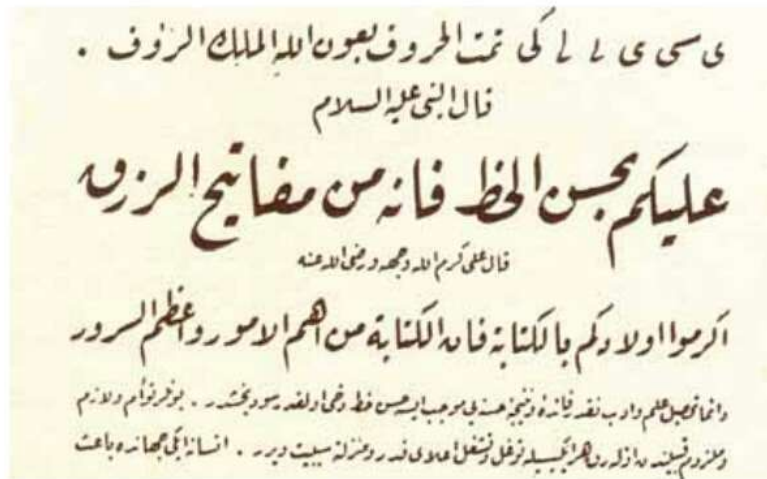 ى سى ى لے لے گى تمت الحروف بعون الله الملك الرؤف .
قال النبى عليه السلام
عليكم بحسن الخط فانه من مفاتيح الرزق
قال على كرم الله وجهه و رضى الله عنه
اكرموا اولادكم بالكتابة فان الكتابة من اهم الامور واعظم السرور
دائما تحصيل علم وادب نقدر فائده ونتيجۀ حسنه يى موجب ايسه حسن خط دخى اولقدر سودبخشدر . بو فرتوأم ولازم
وملزوم قبيلندن اوله رق هر ايكيسيله توغل وتشغل اعلاى قدر ومنزلته سببيت ويرر . انسانه ايكى جهانده باعث